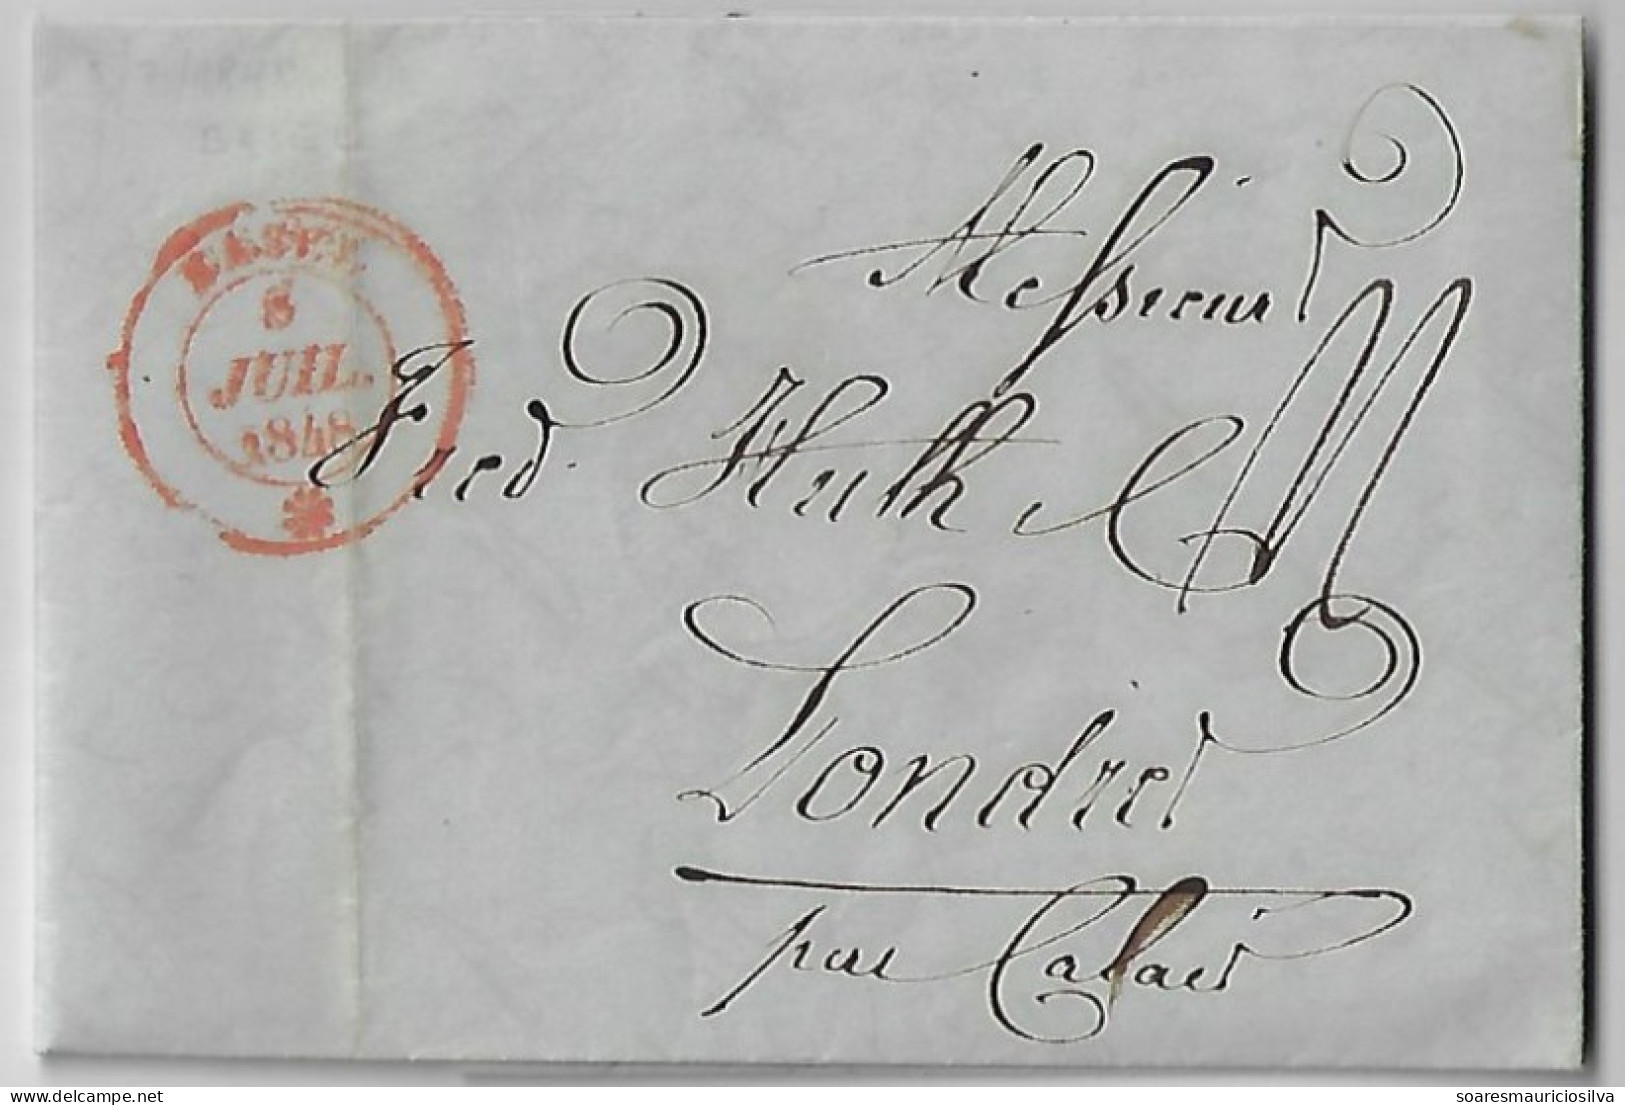 BASEL
8
JUIL.
1848
Messieurs
Fred. Huth & C
Londres
par Calais
soaresmauriciosilva